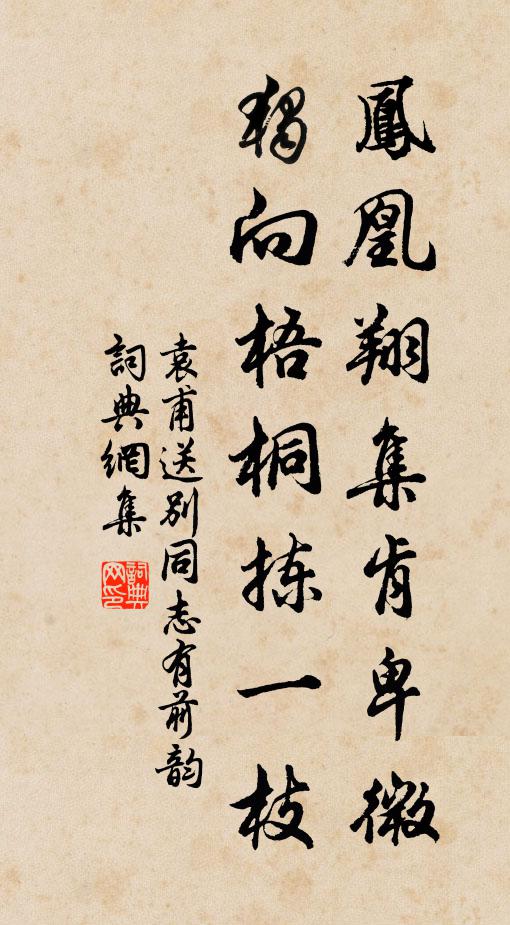 鳳凰翔集肯卑微
獨向梧桐揀一枝
袁甫送別同志有前韵
詞典網集
詞典网印